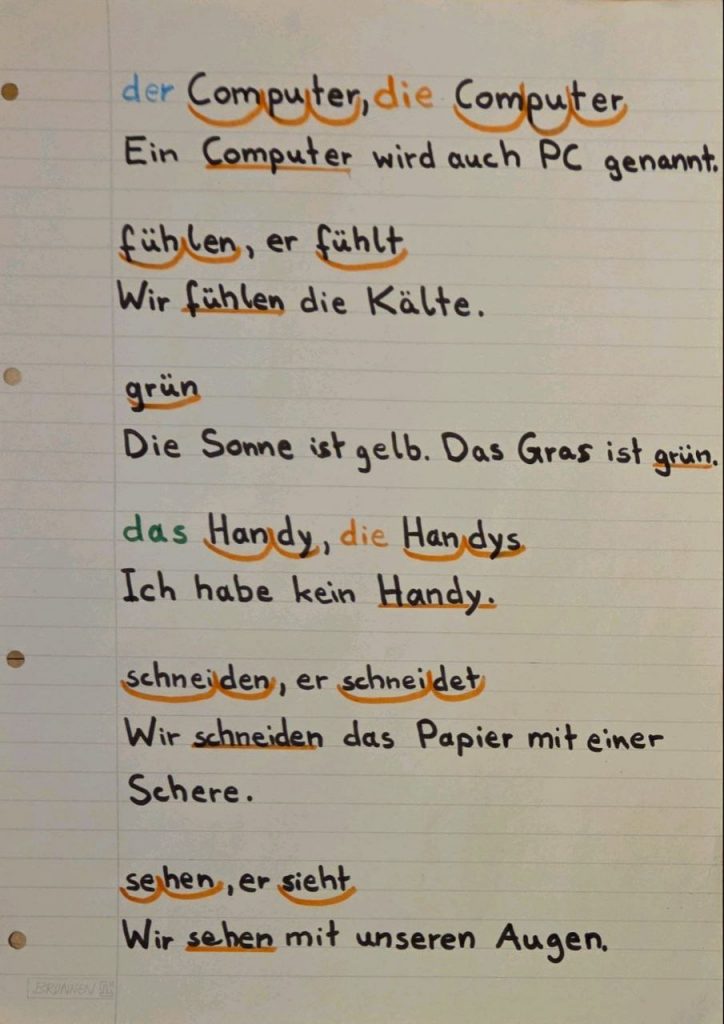 der Computer, die Computer
Ein Computer wird auch PC genannt.
fühlen, er fühlt
Wir fühlen die Kälte.
grün
Die Sonne ist gelb. Das Gras ist grün.
das Handy, die Handys
Ich habe kein Handy.
schneiden, er schneidet
Wir schneiden das Papier mit einer
Schere.
sehen, er sieht
Wir sehen mit unseren Augen.
BRUNNEN